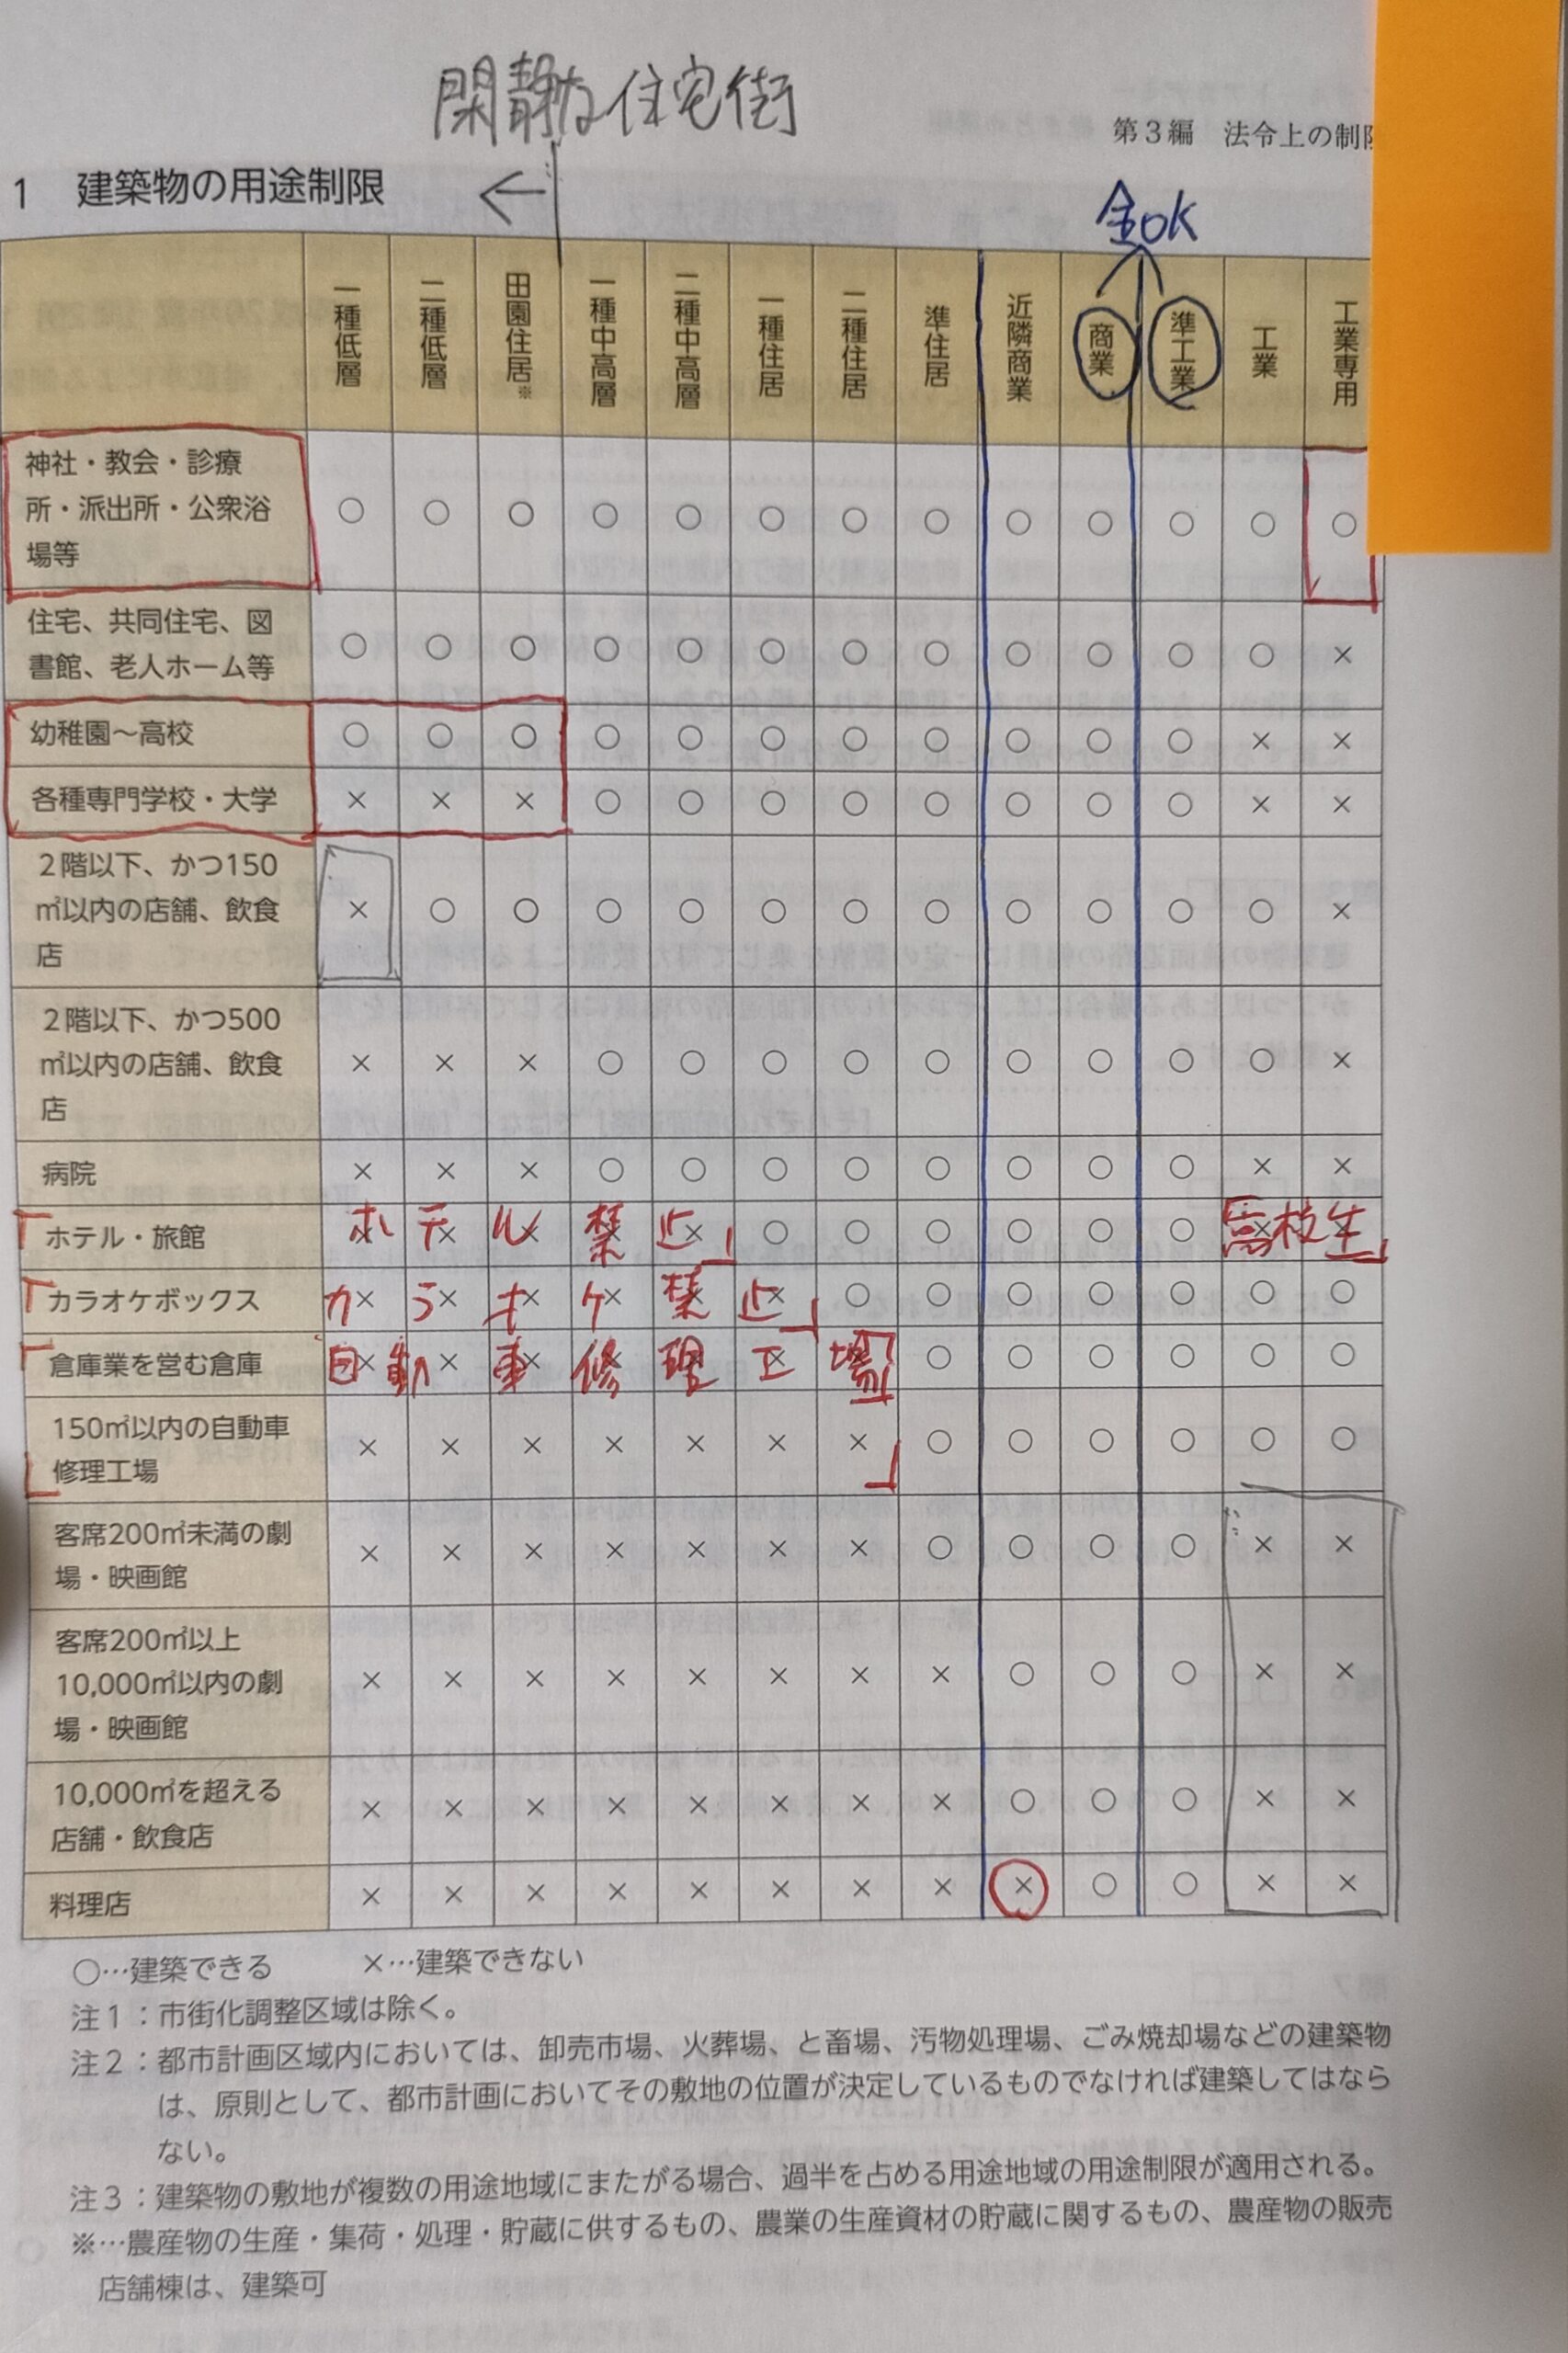 閑静な住宅街
第3編 法令上の制
1 建築物の用途制限
←
全OK
一種低層 二種低層 田園住居※ 一種中高層 二種中高層 一種住居 二種住居 準住居 近隣商業 商業 準工業 工業 工業専用
神社・教会・診療
所・派出所・公衆浴
場等
○ ○ ○ ○ ○ ○ ○ ○ ○ ○ ○ ○ ○
住宅、共同住宅、図
書館、老人ホーム等
○ ○ ○ ○ ○ ○ ○ ○ ○ ○ ○ ○ ×
幼稚園〜高校 ○ ○ ○ ○ ○ ○ ○ ○ ○ ○ ○ × ×
各種専門学校・大学 × × × ○ ○ ○ ○ ○ ○ ○ ○ × ×
2階以下、かつ150
㎡以内の店舗、飲食
店
× ○ ○ ○ ○ ○ ○ ○ ○ ○ ○ ○ ×
2階以下、かつ500
㎡以内の店舗、飲食
店
× × × ○ ○ ○ ○ ○ ○ ○ ○ ○ ×
病院 × × × ○ ○ ○ ○ ○ ○ ○ ○ × ×
「ホテル・旅館 × × × × × ○ ○ ○ ○ ○ ○ × ×
ホテル禁止」 「高校生」
「カラオケボックス × × × × × × ○ ○ ○ ○ ○ ○ ○
カラオケ禁止」
「倉庫業を営む倉庫 × × × × × × × ○ ○ ○ ○ ○ ○
自動車修理工場
150㎡以内の自動車
修理工場
× × × × × × × ○ ○ ○ ○ ○ ○
客席200㎡未満の劇
場・映画館
× × × × × × × ○ ○ ○ ○ × ×
客席200㎡以上
10,000㎡以内の劇
場・映画館
× × × × × × × × ○ ○ ○ × ×
10,000㎡を超える
店舗・飲食店
× × × × × × × × ○ ○ ○ × ×
料理店 × × × × × × × × × ○ ○ × ×
○…建築できる ×…建築できない
注1：市街化調整区域は除く。
注2：都市計画区域内においては、卸売市場、火葬場、と畜場、汚物処理場、ごみ焼却場などの建築物
は、原則として、都市計画においてその敷地の位置が決定しているものでなければ建築してはなら
ない。
注3：建築物の敷地が複数の用途地域にまたがる場合、過半を占める用途地域の用途制限が適用される。
※…農産物の生産・集荷・処理・貯蔵に供するもの、農業の生産資材の貯蔵に関するもの、農産物の販売
店舗棟は、建築可